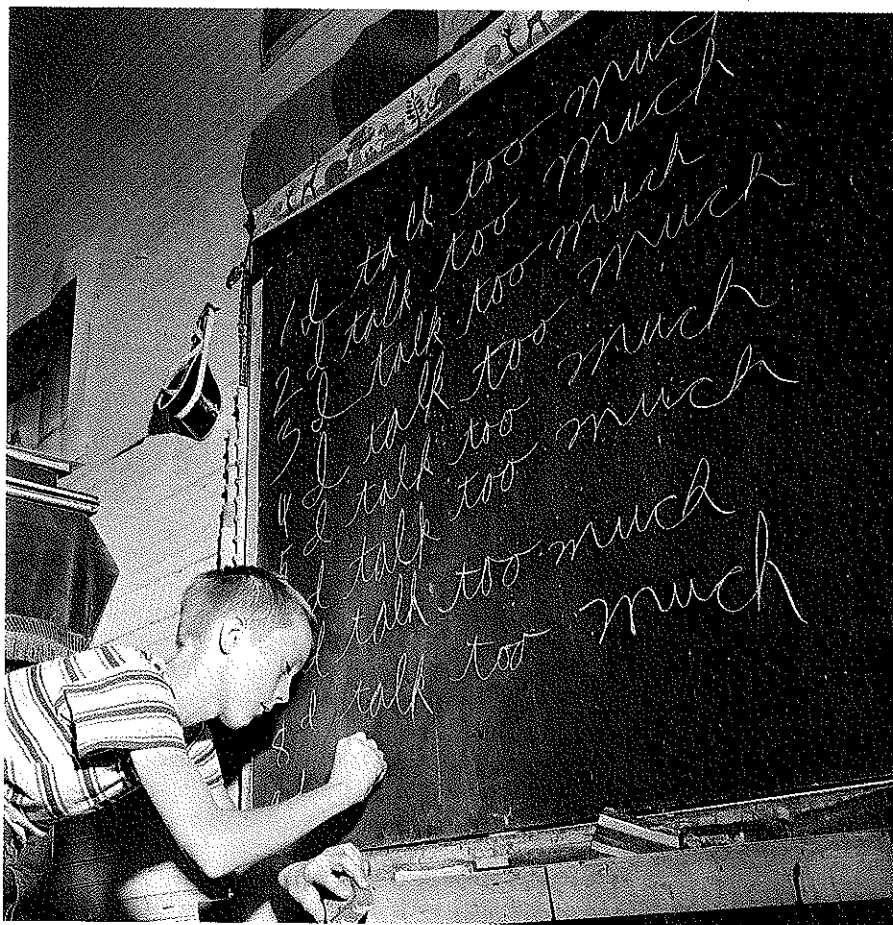 1 I talk too much
2 I talk too much
3 I talk too much
4 I talk too much
5 I talk too much
I talk too much
I talk too much
8 I talk too much
9 I